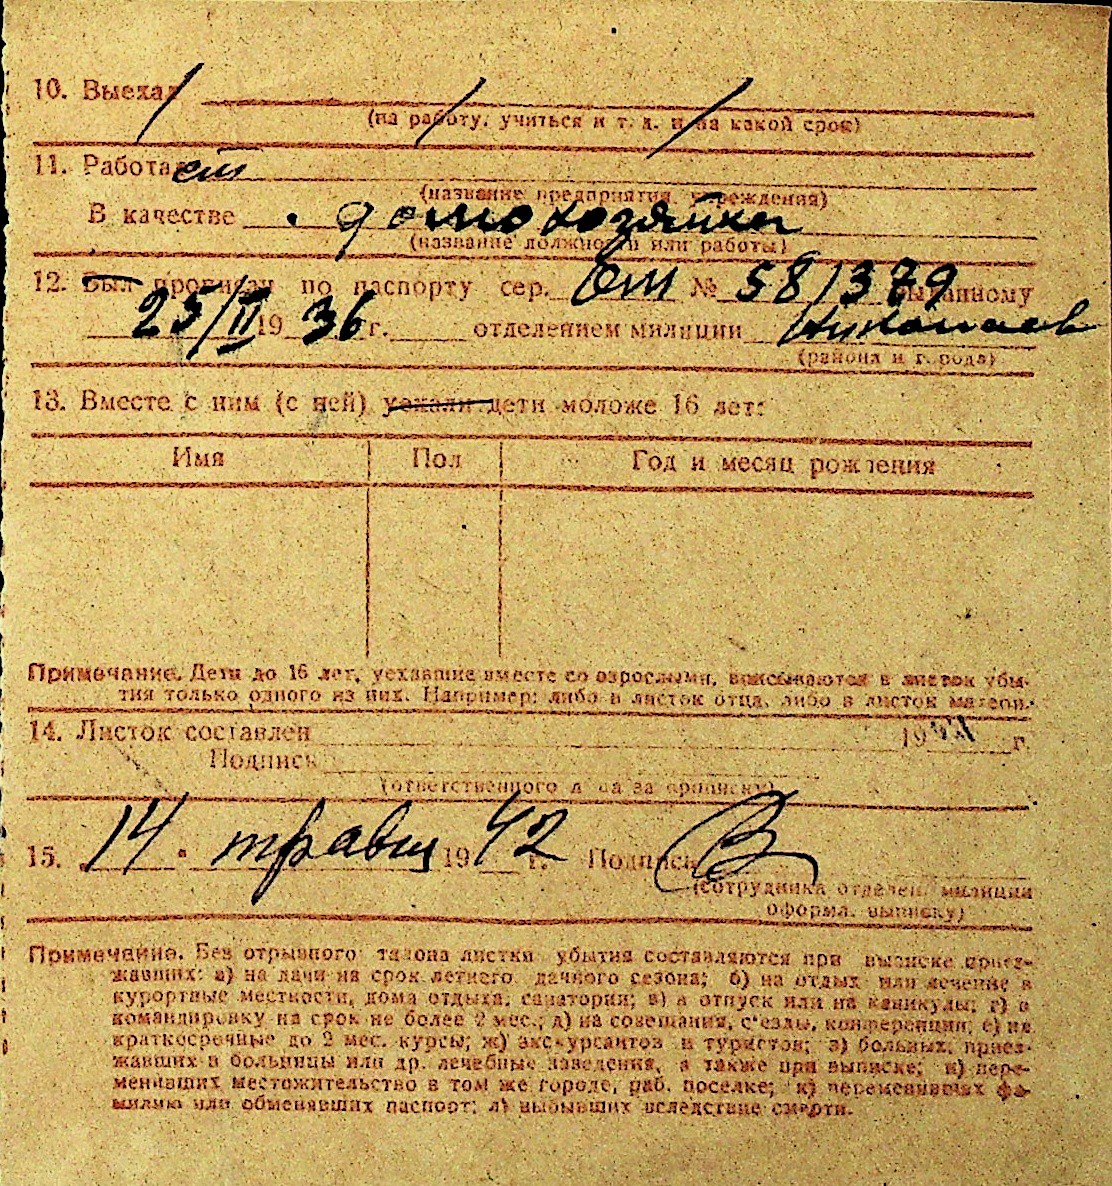 10. Выехал / / /
(на работу, учиться и т. д. и на какой срок)
11. Работает
(название предприятия, учреждения)
В качестве домохозяйки
(название должности или работы)
12. Был прописан по паспорту сер. № 581379 выданному
25/II 1936 г. отделением милиции
(района и города)
13. Вместе с ним (с ней) уехали дети моложе 16 лет:
Имя Пол Год и месяц рождения
Примечание. Дети до 16 лет, уехавшие вместе со взрослыми, вписываются в листок убы-
тия только одного из них. Например: либо в листок отца, либо в листок матери.
14. Листок составлен 19 г.
Подпись
(ответственного л да за прописку)
15. 14 травня 1942 г. Подпись
(сотрудника отделен. милиции
оформл. выписку)
Примечание. Без отрывного талона листки убытия составляются при выписке приез-
жавших: а) на дачи на срок летнего дачного сезона; б) на отдых или лечение в
курортные местности, дома отдыха, санатории; в) в отпуск или на каникулы; г) в
командировку на срок не более 2 мес.; д) на совещания, с'езды, конференции; е) на
краткосрочные до 2 мес. курсы; ж) экскурсантов и туристов; з) больных, приез-
жавших в больницы или др. лечебные заведения, а также при выписке; и) пере-
менивших местожительство в том же городе, раб. поселке; к) переменивших фа-
милию или обменявших паспорт; л) выбывших вследствие смерти.